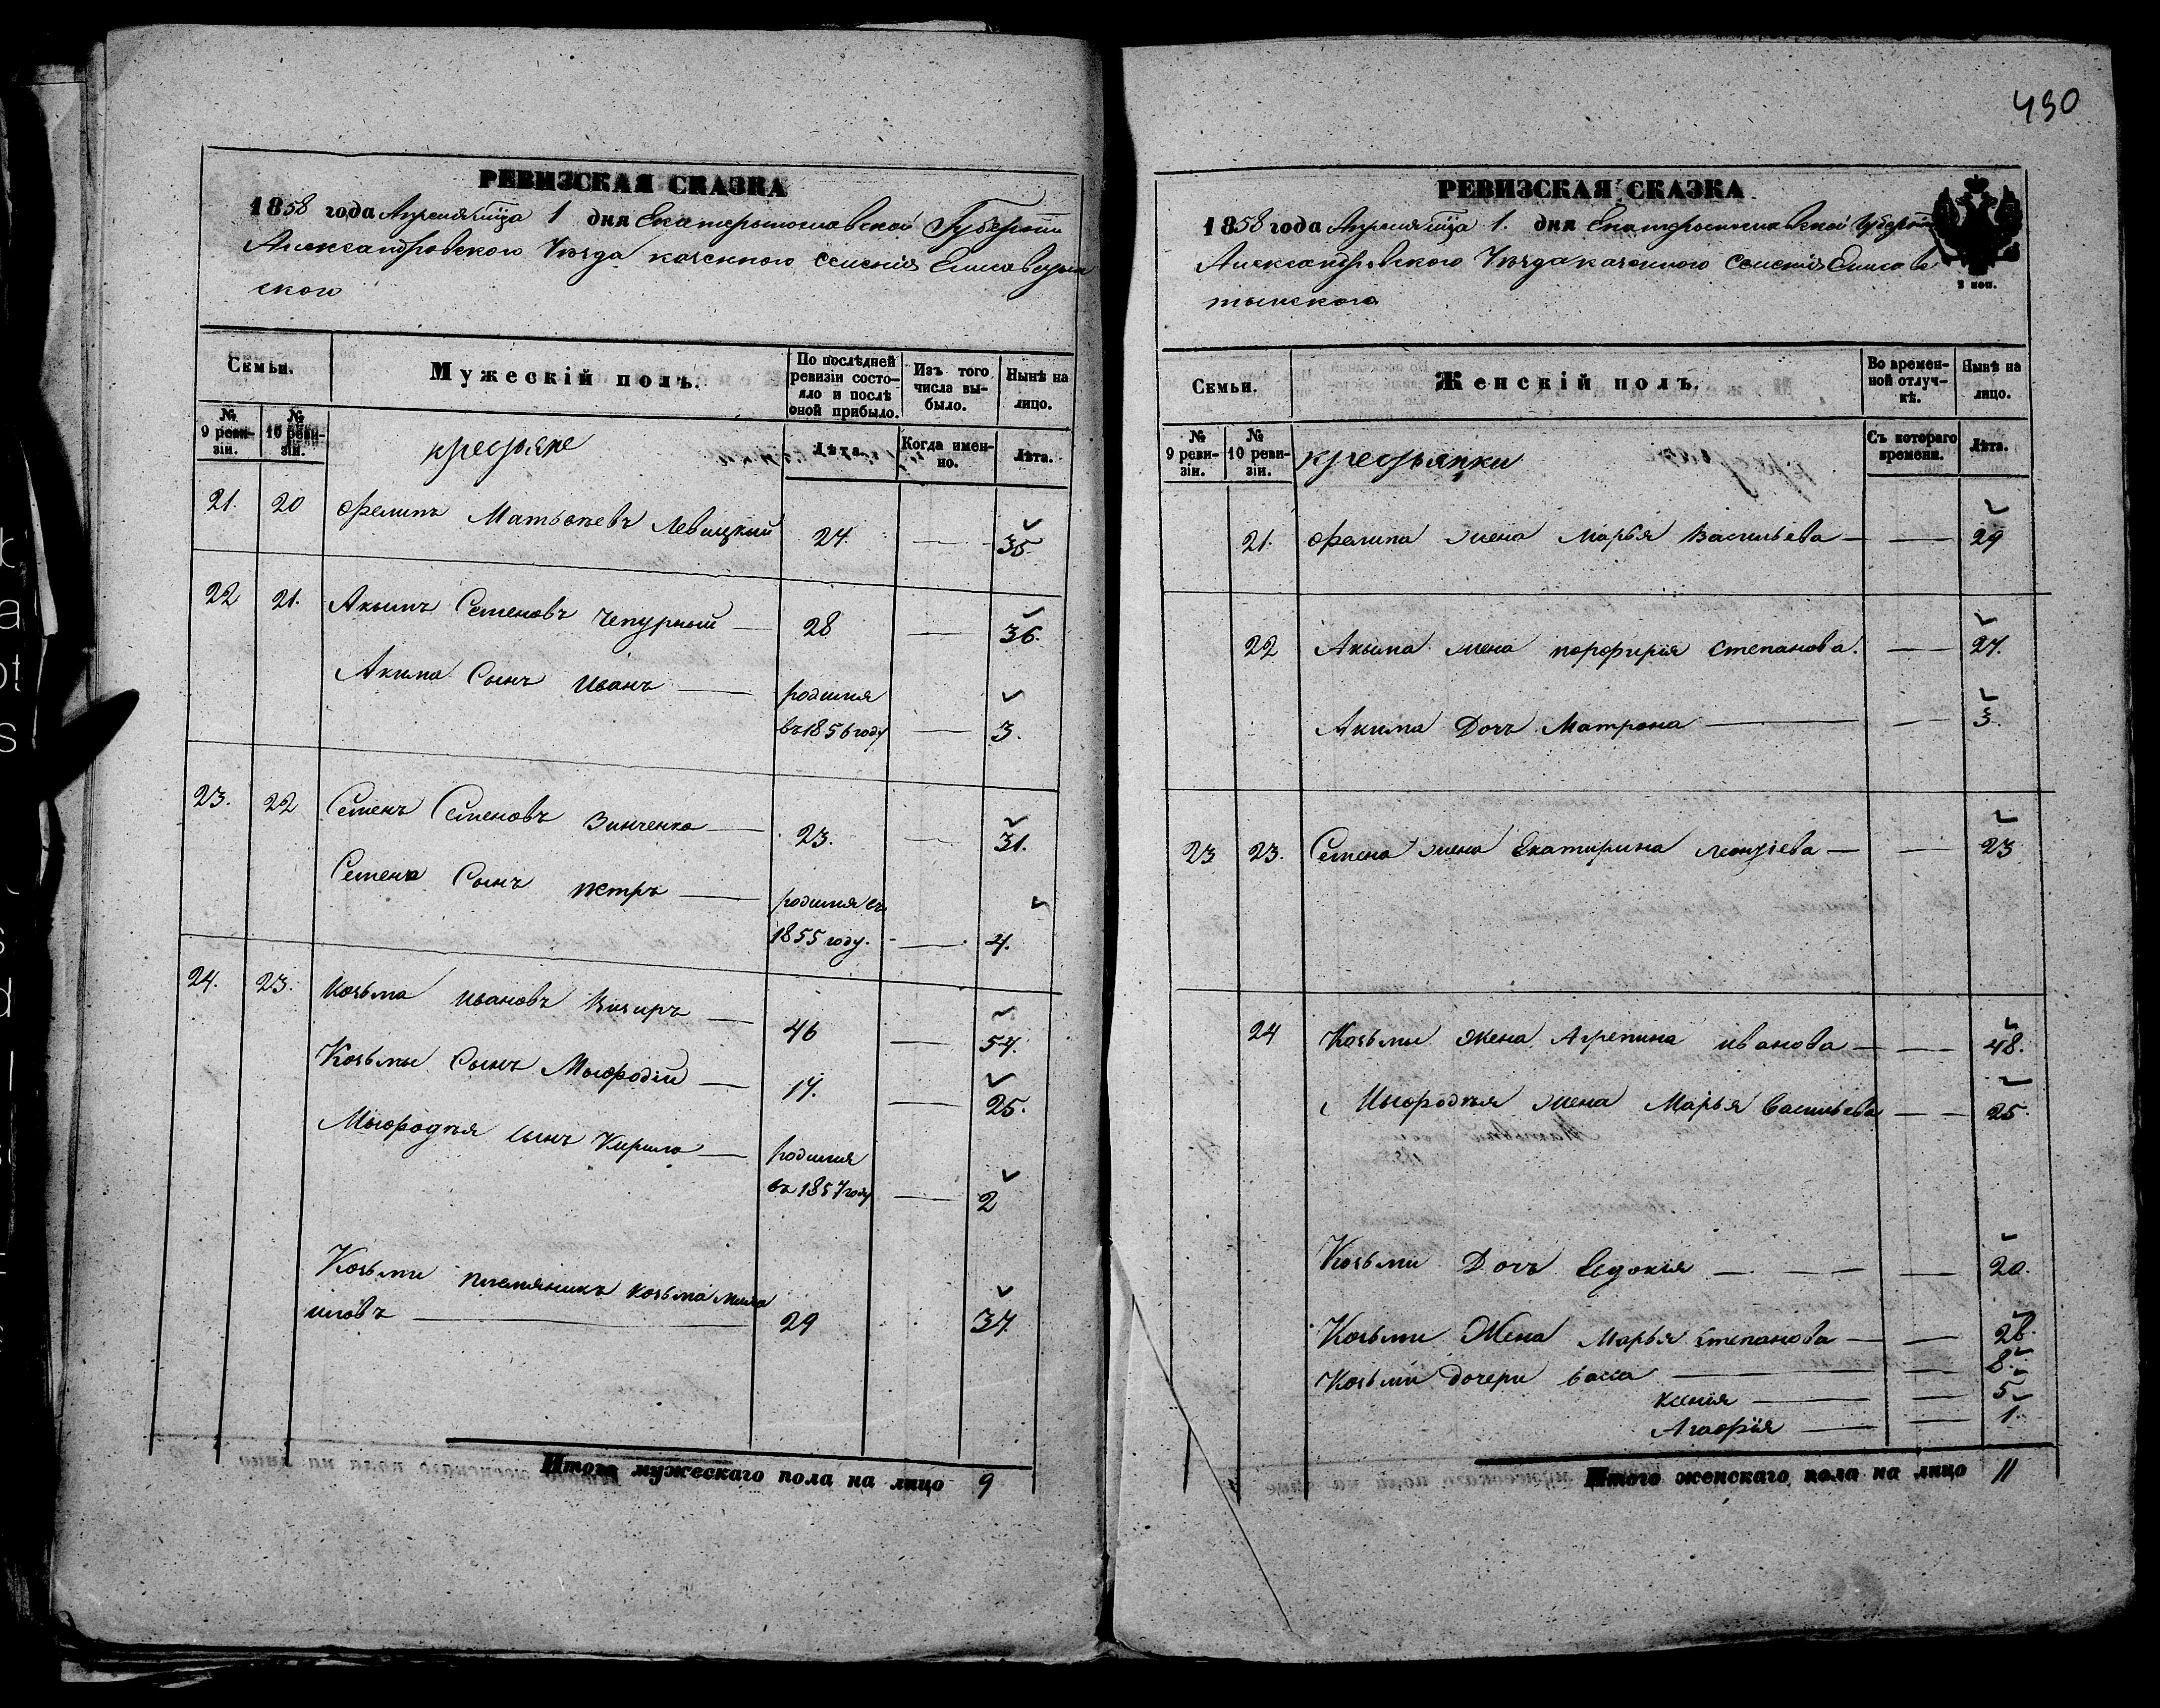 490
РЕВИЗСКАЯ СКАЗКА
1858 года Апреля мца 1 дня Екатеринославской Губернии
Александровского Уѣзда казенного селенія Елисаветин
ского
Семьи.
Мужескій полъ.
По послѣдней ревизіи состояло и послѣ оной прибыло.
Изъ того числа выбыло.
Нынѣ на лицо.
№ 9 ревизіи.
№ 10 ревизіи.
крестьяне
Лѣта.
Когда именно.
Лѣта.
21. 20 Филипъ Матвѣевъ Левицкий 27. — 35.
22 21. Акимъ Семеновъ Чепурный — 28 — 36.
Акима Сынъ Иванъ — родился
въ 1856 году — 3.
23. 22 Семенъ Семеновъ Зинченко — 23. — 31.
Семена Сынъ Петръ — родился въ
1855 году. — 4.
24. 23. Козьма Ивановъ Визиръ — 46 — 54.
Козьмы Сынъ Мыфодій — 17. — 25.
Мыфодѣя Сынъ Кирило — родился
въ 1857 году — 2
Козьми племяникъ Козьма Миха
иловъ — 29 37.
Итого мужескаго пола на лицо 9
РЕВИЗСКАЯ СКАЗКА
1858 года Апреля мца 1. дня Екатеринославской Губерніи
Александровского Уѣзда казенного селенія Елисаве
тинского
2 коп.
Семьи.
Женскій полъ.
Во временной отлучкѣ.
Нынѣ на лицо.
№ 9 ревизіи.
№ 10 ревизіи.
крестьянки
Съ котораго времени.
Лѣта.
21. Филипа жена Марья Васильева — — 29
22 Акыма жена Порфирия Степанова. — 27.
Акима Дочь Матрона — — 3.
23 23. Семена жена Екатирина Леонтіева — — 23
24 Козьмы жена Агрепина Иванова — — 48.
Мыфодѣя жена Марья Васильева — 25.
Козьми Дочь Евдокія — — 20.
Козьми Жена Марья Степанова — — 28.
Козьми дочери Васса — — 8.
Ксенія — — 5
Агафія — — 1.
Итого женскаго пола на лицо 11